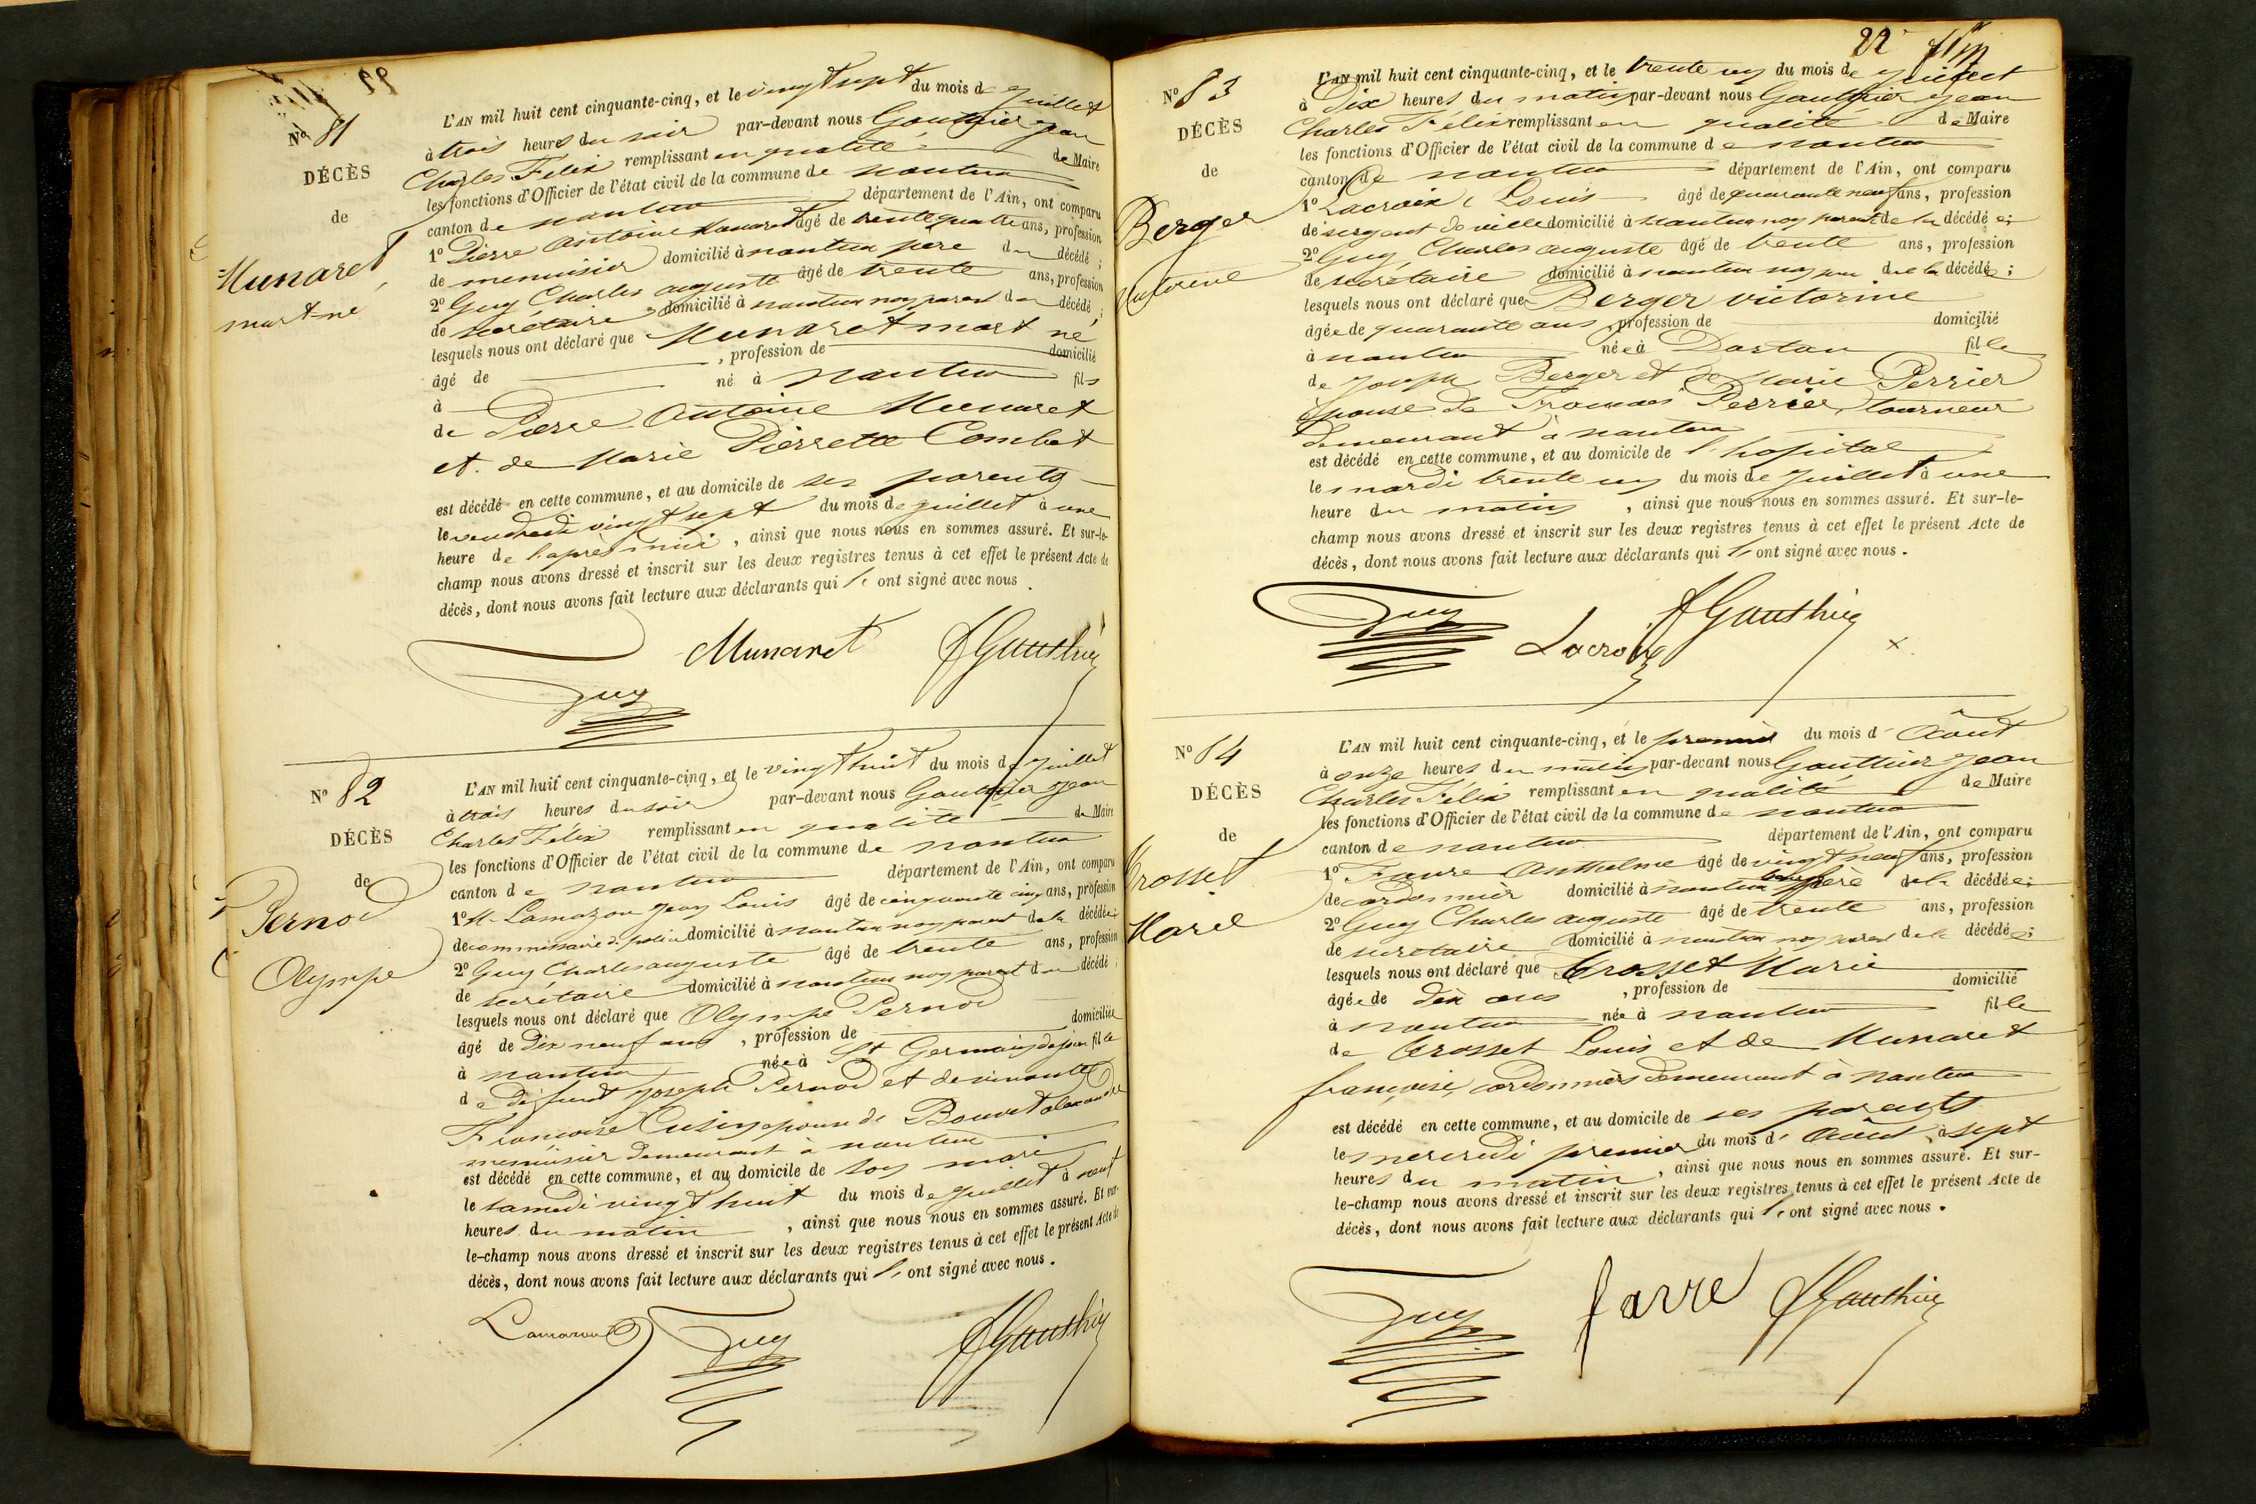 Nº 81
DÉCÈS
de
Munaret
mort né
L'AN mil huit cent cinquante-cinq, et le vingt sept du mois de juillet
à trois heures du soir par-devant nous Gauthier Jean
Charles Félix remplissant en qualité de Maire
les fonctions d'Officier de l'état civil de la commune de nantua
canton de nantua département de l'Ain, ont comparu
1º Pierre Antoine Munaret âgé de trente quatre ans, profession
de menuisier domicilié à nantua père du décédé ;
2º Guy Charles auguste âgé de trente ans, profession
de secrétaire domicilié à nantua non parent du décédé ;
lesquels nous ont déclaré que Munaret mort né
âgé de , profession de domicilié
à né à nantua fils
de Pierre Antoine Munaret
et de Marie Pierrette Combet
est décédé en cette commune, et au domicile de ses parents
le vendredi vingt sept du mois de juillet à une
heure de l'après midi, ainsi que nous nous en sommes assuré. Et sur-le-
champ nous avons dressé et inscrit sur les deux registres tenus à cet effet le présent Acte de
décès, dont nous avons fait lecture aux déclarants qui l' ont signé avec nous.
Munaret Gauthier
Guy
Nº 82
DÉCÈS
de
Pernod
Olympe
L'AN mil huit cent cinquante-cinq, et le vingt huit du mois de juillet
à trois heures du soir par-devant nous Gauthier Jean
Charles Félix remplissant en qualité de Maire
les fonctions d'Officier de l'état civil de la commune de nantua
canton de nantua département de l'Ain, ont comparu
1º M. Lamazou Jean Louis âgé de cinquante cinq ans, profession
de commissaire de police domicilié à nantua non parent de la décédée ;
2º Guy Charles auguste âgé de trente ans, profession
de secrétaire domicilié à nantua non parent du décédé ;
lesquels nous ont déclaré que Olympe Pernod
âgé de dix neuf ans, profession de domiciliée
à nantua née à St Germain de joux fille
de défunt Joseph Pernod et de vivante
Françoise Cusin épouse de Bouvet alexandre
menuisier demeurant à nantua
est décédé en cette commune, et au domicile de son mari
le samedi vingt huit du mois de juillet à neuf
heures du matin, ainsi que nous nous en sommes assuré. Et sur-
le-champ nous avons dressé et inscrit sur les deux registres tenus à cet effet le présent Acte de
décès, dont nous avons fait lecture aux déclarants qui l' ont signé avec nous.
Lamazou Guy Gauthier
22
Nº 83
DÉCÈS
de
Berger
Victorine
L'AN mil huit cent cinquante-cinq, et le trente un du mois de juillet
à Dix heures du matin par-devant nous Gauthier Jean
Charles Félix remplissant en qualité de Maire
les fonctions d'Officier de l'état civil de la commune de nantua
canton de nantua département de l'Ain, ont comparu
1º Lacroix Louis âgé de quarante neuf ans, profession
de sergent de ville domicilié à nantua non parent de la décédée ;
2º Guy Charles auguste âgé de trente ans, profession
de secrétaire domicilié à nantua non par de la décédée ;
lesquels nous ont déclaré que Berger victorine
âgée de quarante ans, profession de domicilié
à nantua née à Dortan fille
de Joseph Berger et de Marie Perrier
épouse de François Perrier, tourneur
demeurant à nantua
est décédé en cette commune, et au domicile de l'hopital
le mardi trente un du mois de juillet à une
heure du matin, ainsi que nous nous en sommes assuré. Et sur-le-
champ nous avons dressé et inscrit sur les deux registres tenus à cet effet le présent Acte de
décès, dont nous avons fait lecture aux déclarants qui l' ont signé avec nous.
Guy Lacroix Gauthier
Nº 84
DÉCÈS
de
Crosset
Marie
L'AN mil huit cent cinquante-cinq, et le premier du mois d' Août
à onze heures du matin par-devant nous Gauthier Jean
Charles Félix remplissant en qualité de Maire
les fonctions d'Officier de l'état civil de la commune de nantua
canton de nantua département de l'Ain, ont comparu
1º Favre Anthelme âgé de vingt neuf ans, profession
de cordonnier domicilié à nantua beau frère de la décédée ;
2º Guy Charles auguste âgé de trente ans, profession
de secrétaire domicilié à nantua non parent de la décédée ;
lesquels nous ont déclaré que Crosset Marie
âgée de dix ans, profession de domicilié
à nantua née à nantua fille
de Crosset Louis et de Munaret
françoise, cordonniers demeurant à nantua
est décédé en cette commune, et au domicile de ses parents
le mercredi premier du mois d' Août à sept
heures du matin, ainsi que nous nous en sommes assuré. Et sur-
le-champ nous avons dressé et inscrit sur les deux registres tenus à cet effet le présent Acte de
décès, dont nous avons fait lecture aux déclarants qui l' ont signé avec nous.
Guy favre Gauthier